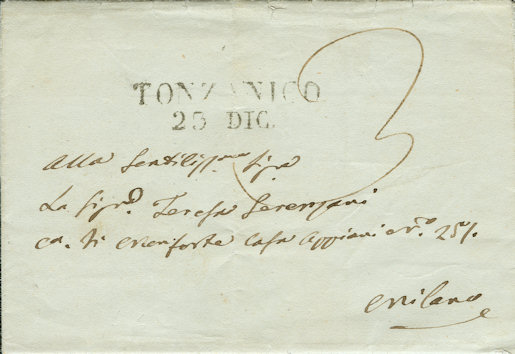 TONZANICO
23 DIC.
3
Alla Gentiliss.ma Sig.ra
La Sig.ra Teresa
C.a di Monforte Casa Appiani N.°
Milano